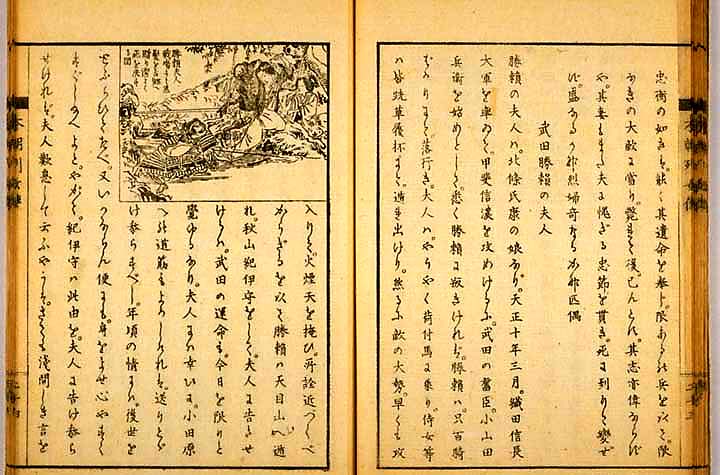 忠衡の如きも。能く其遺命を奉ト。限ある兵を以て。限
なきの大敵に當り。斃れて後。已んとす。其志亦偉ならず
や。其妻もまた夫に愧ざる忠節を貫き。死に到りて變ぜ
ず。盛なるか那烈婦奇なるか那匹偶
武田勝頼の夫人
勝頼の夫人ハ。北條氏康の娘なり。天正十年三月。織田信長
大軍を率ゐて。甲斐信濃を攻めけるに。武田の舊臣。小山田
兵衛を始めとして。悉く勝頼に叛きければ。勝頼ハ。只百騎
ばかりにて。落行き。夫人ハ。やうやく荷付馬に乗り。侍女等
ハ皆跣草履杯にて。遁き出けり。然るに敵の大勢。早くも攻
勝頼夫人
贈り潔よく
死を决する
圖
入りて。火煙天を掩ひ。所詮近づくべ
からざるを以て。勝頼ハ天目山へ遁
れ。秋山紀伊守をして。夫人に告させ
けるハ。武田の運命も。今日を限りと
覺ゆるなり。夫人にハ幸いに。小田原
への道筋もよろしければ。送りとゞ
け参らすべし。年頃の情にハ。後世を
とふらひてたべ。又い便にも。身をよせ心やすく
すごしよと。やがて。紀伊守ハ此由を。夫人に告け参ら
せければ。夫人歎息して云ふやう。さても淺間しき言を
本朝列